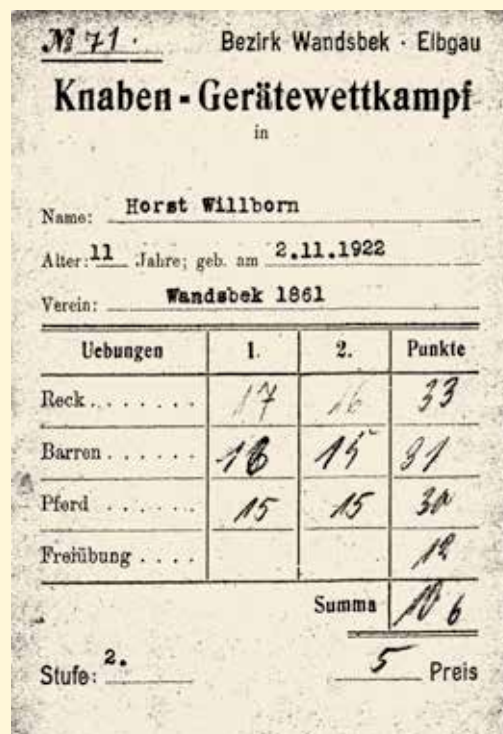 № 71. Bezirk Wandsbek · Elbgau
Knaben - Gerätewettkampf
in
Name: Horst Willborn
Alter: 11 Jahre; geb. am 2.11.1922
Verein: Wandsbek 1861
Uebungen 1. 2. Punkte
Reck . . . . . . . 17 16 33
Barren . . . . . . 16 15 31
Pferd . . . . . . 15 15 30
Freiübung . . . . 12
Summa 106
Stufe: 2. 5 Preis